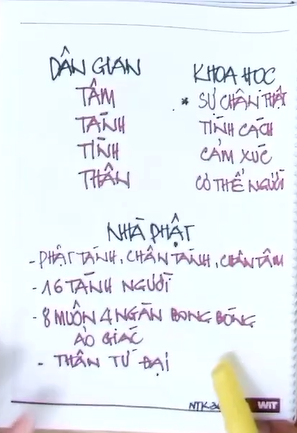 DÂN GIAN
TÂM
TÁNH
TÌNH
THÂN
KHOA HỌC
* SỰ CHÂN THẬT
TÍNH CÁCH
CẢM XÚC
CƠ THỂ NGƯỜI
NHÀ PHẬT
- PHẬT TÁNH, CHÂN TÁNH, CHÂN TÂM
- 16 TÁNH NGƯỜI
- 8 MUÔN 4 NGÀN BONG BÓNG
ẢO GIÁC
- THÂN TỨ ĐẠI
WIT